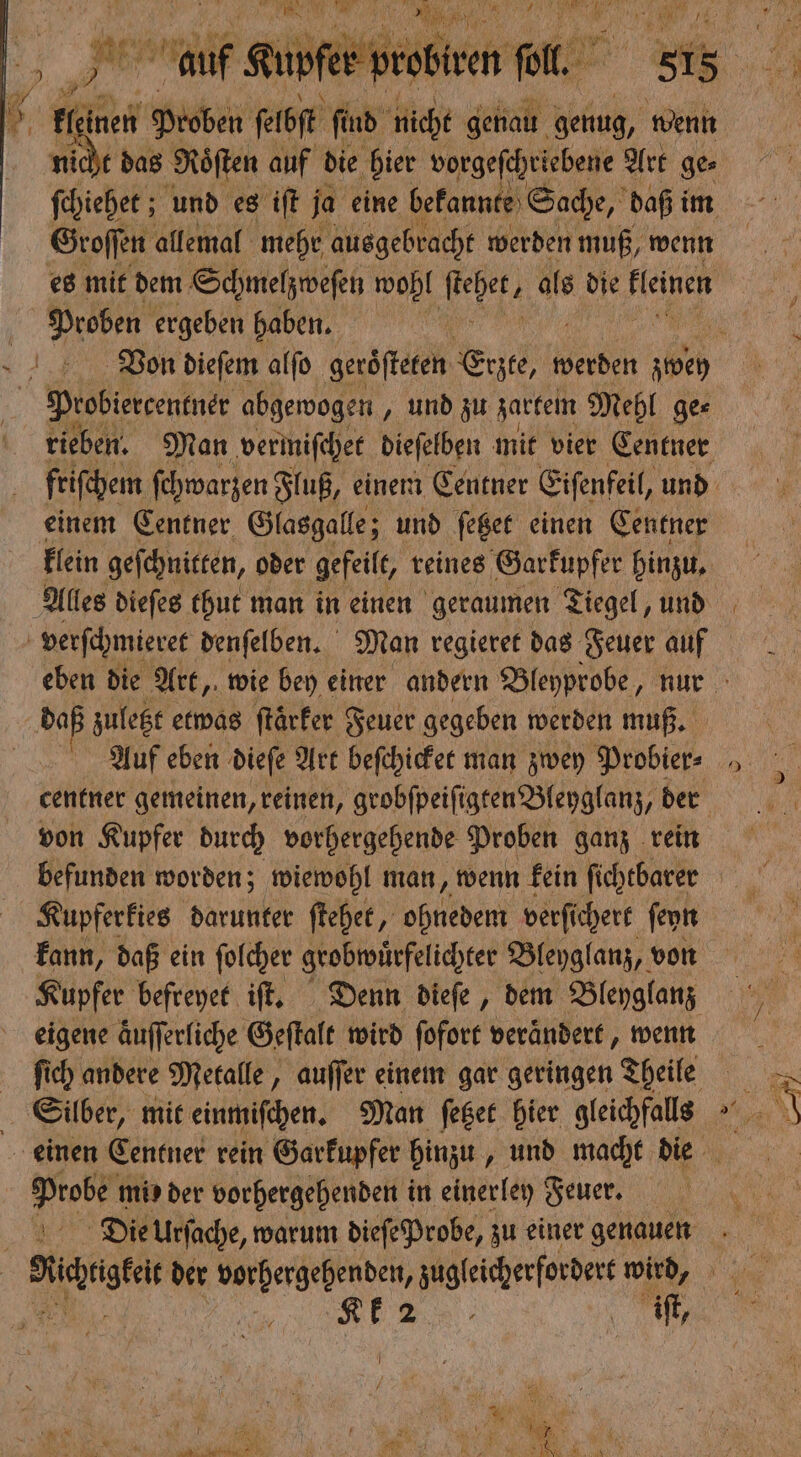 auf Kupfer probiren ſoll. 515
kleinen Proben ſelbſt ſind nicht genau genug, wenn
nicht das Roͤſten auf die hier vorgeſchriebene Art ge⸗
ſchiehet; und es iſt ja eine bekannte Sache, daß im
Groſſen allemal mehr ausgebracht werden muß, wenn
es mit dem Schmelzweſen wohl ſtehet, als die kleinen
Proben ergeben haben.
Von dieſem alſo geroͤſteten Erzte, werden zwey
Probiercentner abgewogen, und zu zartem Mehl ge⸗
rieben. Man vermiſchet dieſelben mit vier Centner
friſchem ſchwarzen Fluß, einem Centner Eiſenfeil, und
einem Centner Glasgalle; und ſetzet einen Centner
klein geſchnitten, oder gefeilt, reines Garkupfer hinzu.
Alles dieſes thut man in einen geraumen Tiegel, und
verſchmieret denſelben. Man regieret das Feuer auf
eben die Art, wie bey einer andern Bleyprobe, nur
daß zuletzt etwas ſtaͤrker Feuer gegeben werden muß.
Auf eben dieſe Art beſchicket man zwey Probier⸗
centner gemeinen, reinen, grobſpeiſigten Bleyglanz, der
von Kupfer durch vorhergehende Proben ganz rein
befunden worden; wiewohl man, wenn kein ſichtbarer
Kupferkies darunter ſtehet, ohnedem verſichert ſeyn
kann, daß ein ſolcher grobwuͤrfelichter Bleyglanz, von
Kupfer befreyet iſt. Denn dieſe, dem Bleyglanz
eigene aͤuſſerliche Geſtalt wird ſofort veraͤndert, wenn
ſich andere Metalle, auſſer einem gar geringen Theile
Silber, mit einmiſchen. Man ſetzet hier gleichfalls
einen Centner rein Garkupfer hinzu, und macht die
Probe mit der vorhergehenden in einerley Feuer.
Die Urſache, warum dieſe Probe, zu einer genauen
Richtigkeit der vorhergehenden, zugleich erfordert wird,
Kk 2 iſt,